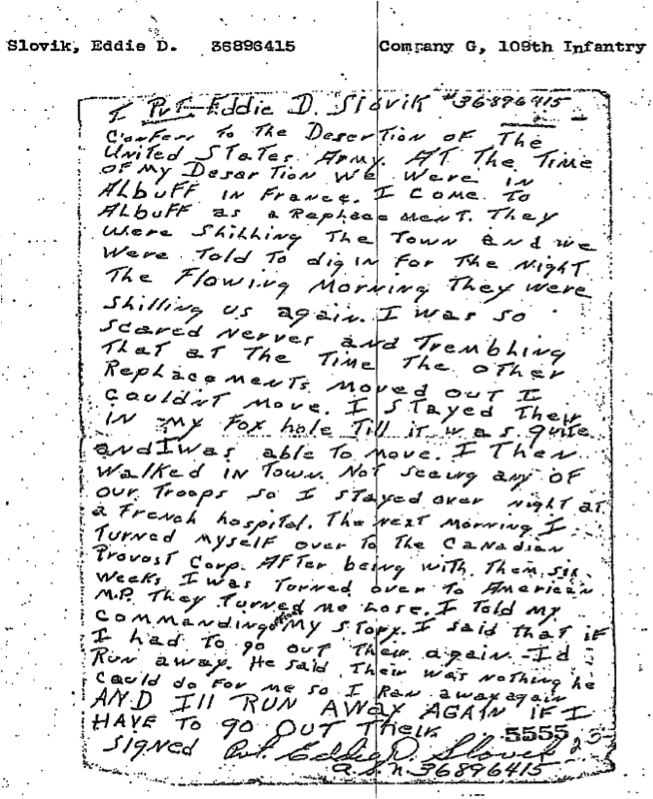 Slovik, Eddie D. 36896415 Company G, 109th Infantry
I Pvt. Eddie D. Slovik #36896415
Confess to the Desertion of The
United States Army. AT The Time
OF my Desertion we were in
ALbuFF in France. I come to
ALbuFF as a Replacement. They
were shilling The Town and we
were Told To dig in for The Night.
The Flowing Morning They were
shilling us again. I was so
scared Nerves and Trembling
That at The Time The other
Replacements moved out I
couldn't move. I stayed Their
in my Fox hole Till it was quite
and I was able To move. I Then
walked in Town. Not seeing any OF
our Troops so I stayed over night at
a French hospital. The next Morning I
Turned myself over to The Canadian
Provost Corp. After being with Them six
weeks I was Turned over To American
M.P. They Turned me lose. I Told my
commanding officer my story. I said that if
I had To go out Their again Id
Run away. He said Their was nothing he
could do for me so I Ran away again
AND ILL RUN AWAY AGAIN IF I
HAVE To go OUT Their.
5555
Signed Pvt. Eddie D. Slovik
A.S.N. 36896415